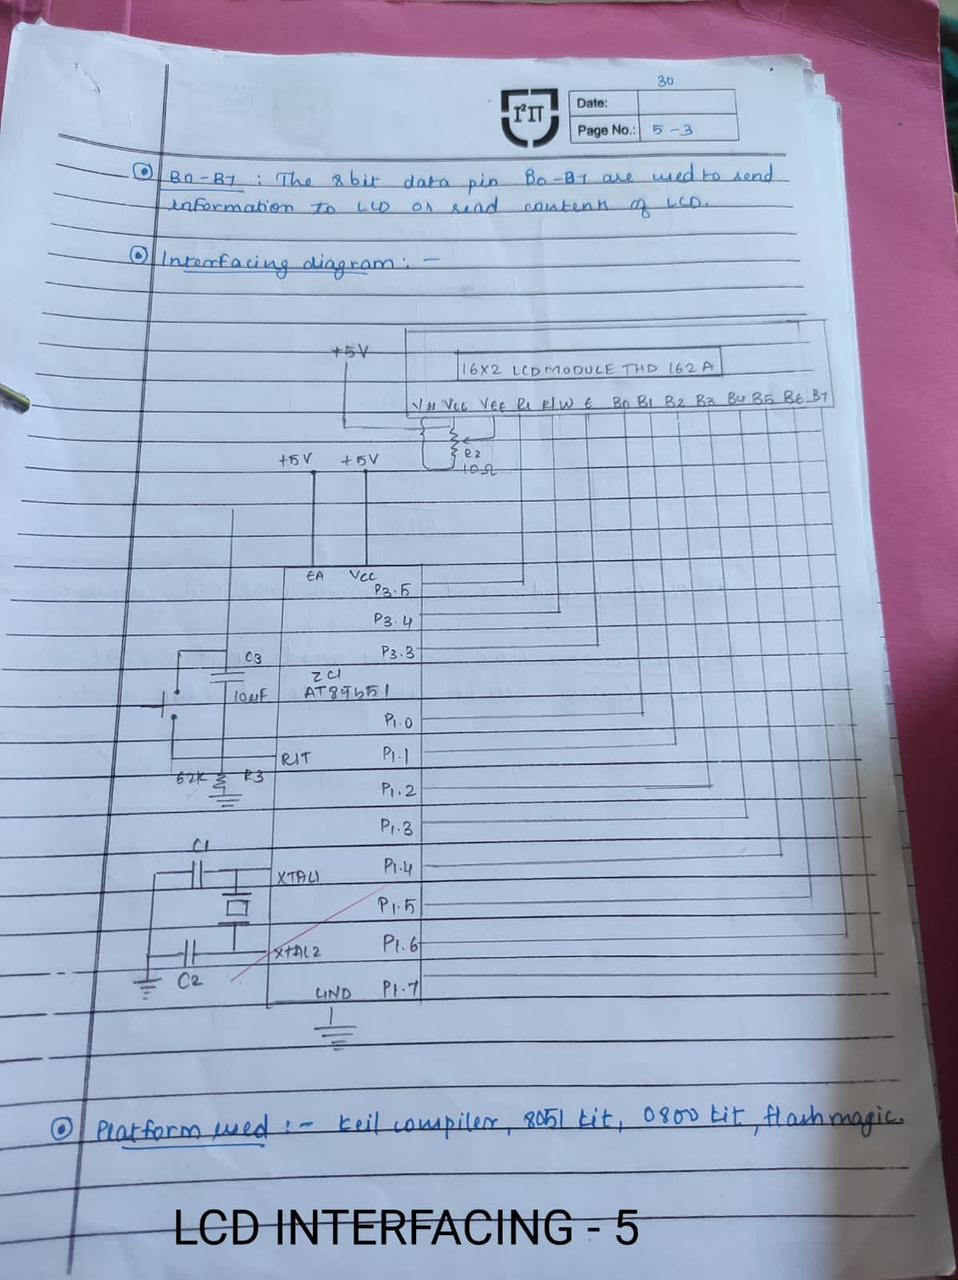 30
I²IT
Date:
Page No.: 5-3
B0-B7 : The 8 bit data pin B0-B7 are used to send
information to LCD or read contents of LCD.
Interfacing diagram : -
+5V
16X2 LCD MODULE THD 162A
VSS VCC VEE RS R/W E B0 B1 B2 B3 B4 B5 B6 B7
R2
10Ω
+5V +5V
EA VCC
P3.5
P3.4
P3.3
C3
10μF
AT89C51
P1.0
RST P1.1
62K R3
P1.2
P1.3
C1
XTAL1 P1.4
P1.5
XTAL2 P1.6
C2
GND P1.7
Platform used :- Keil compiler, 8051 kit, 0800 kit, flash magic.
LCD INTERFACING - 5